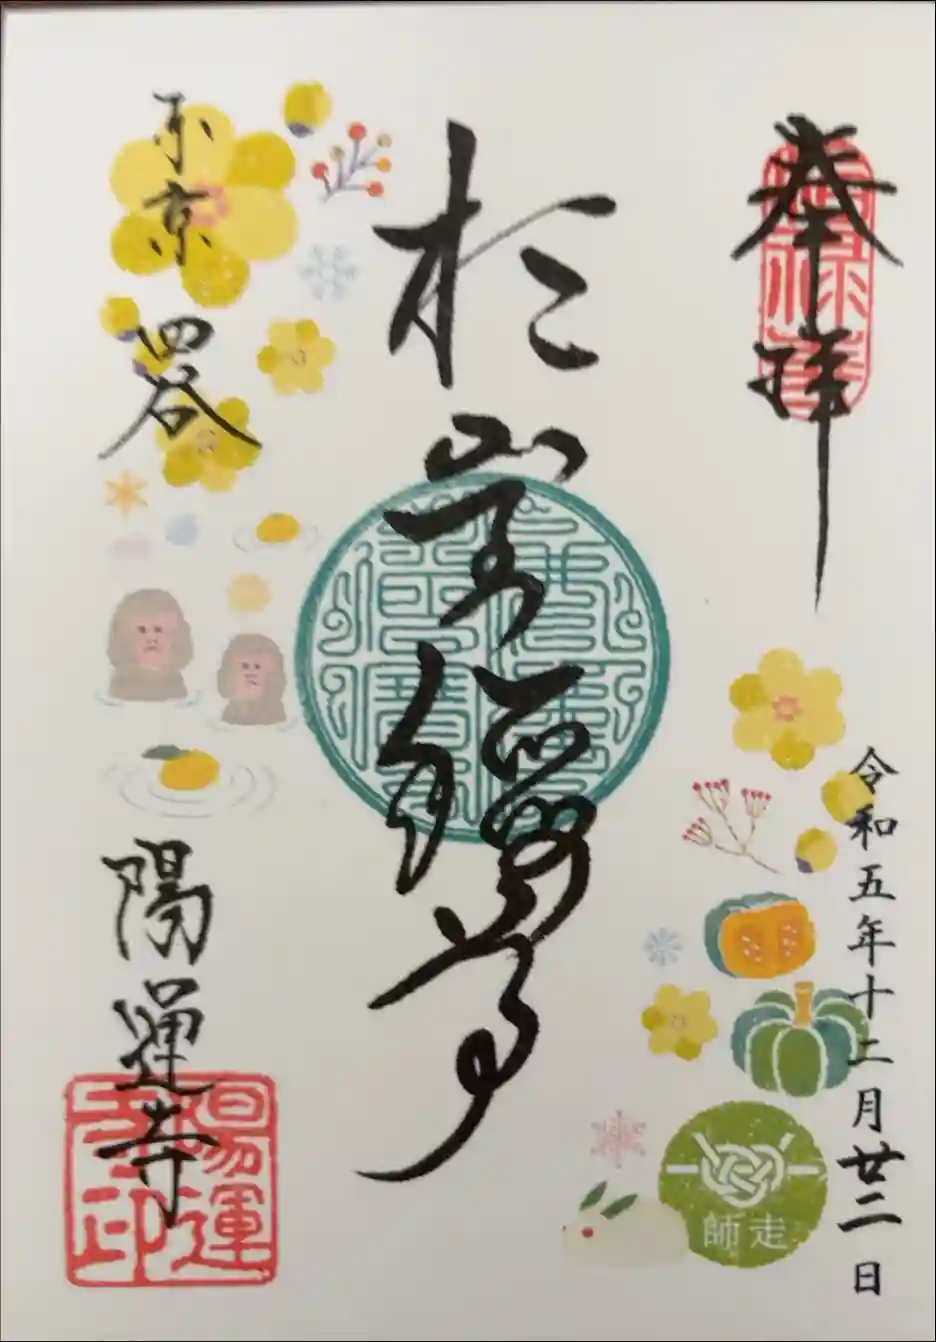 奉拝
令和五年十二月廿二日
師走
於岩
東京
四谷
陽運寺
陽運
寺印